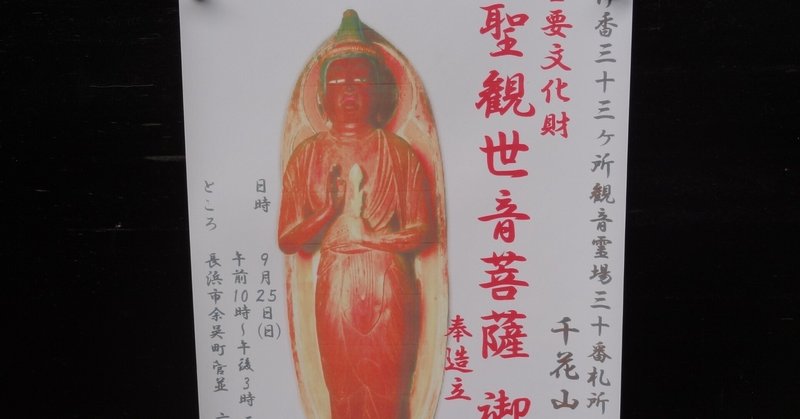 番三十三ヶ所観音霊場三十番札所
千花山
要文化財
聖觀世音菩薩 御
奉造立
日時 9月25日(日)
午前10時～午後3時
ところ 長浜市余呉町菅並